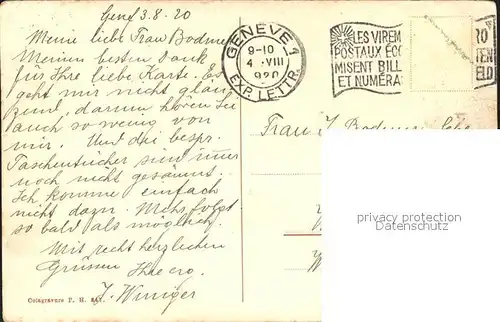 Genf 3.8.20
Meine liebe Frau Bodmer
Meinen besten Dank
für Ihre liebe Karte. Es
geht mir nicht glän
zend, darum hören Sie
auch so wenig von
mir. Und die bespr.
Taschentücher sind immer
noch nicht gesäumt.
Ich komme einfach
nicht dazu. Mehr folgt
so bald als möglich.
Mit recht herzlichen
Grüssen Ihre erg.
J. Winiger
GENÈVE 1
9-10
4. VIII
920
EXP. LETTR.
LES VIREM
POSTAUX ÉCO
MISENT BILL
ET NUMÉRA
Frau J. Bodmer
Colagravure P. H.
privacy protection
datenschutz